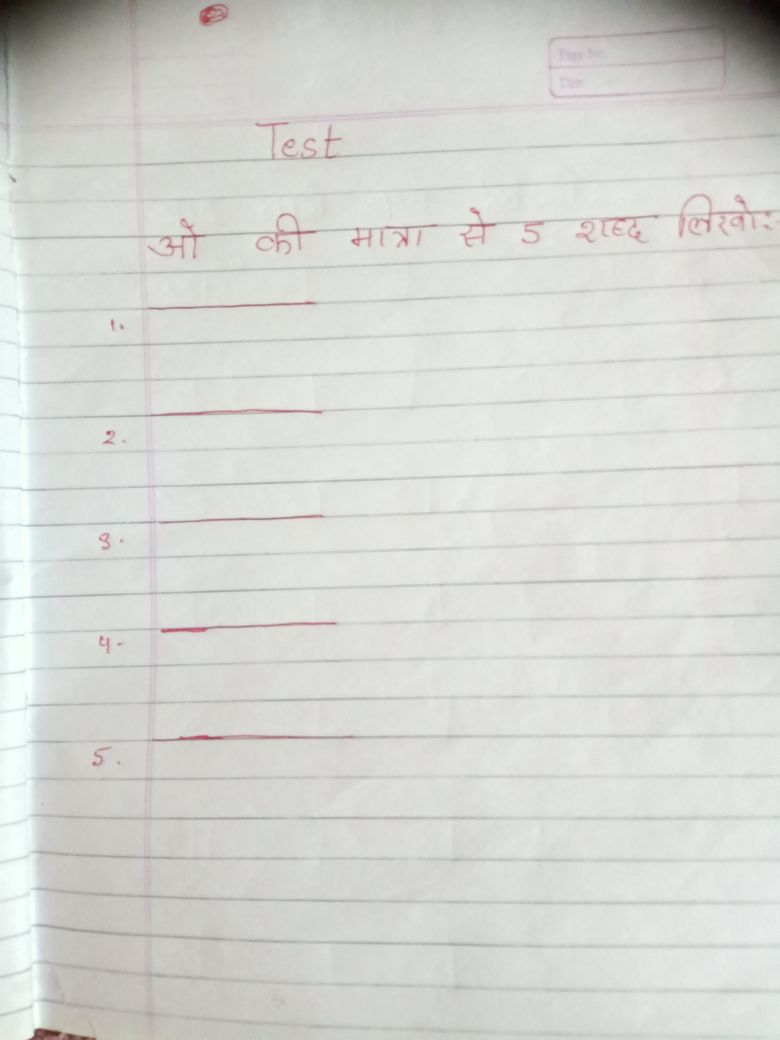 Page No.
Date
Test
ओ की मात्रा से 5 शब्द लिखो:-
1.
2.
3.
4.
5.